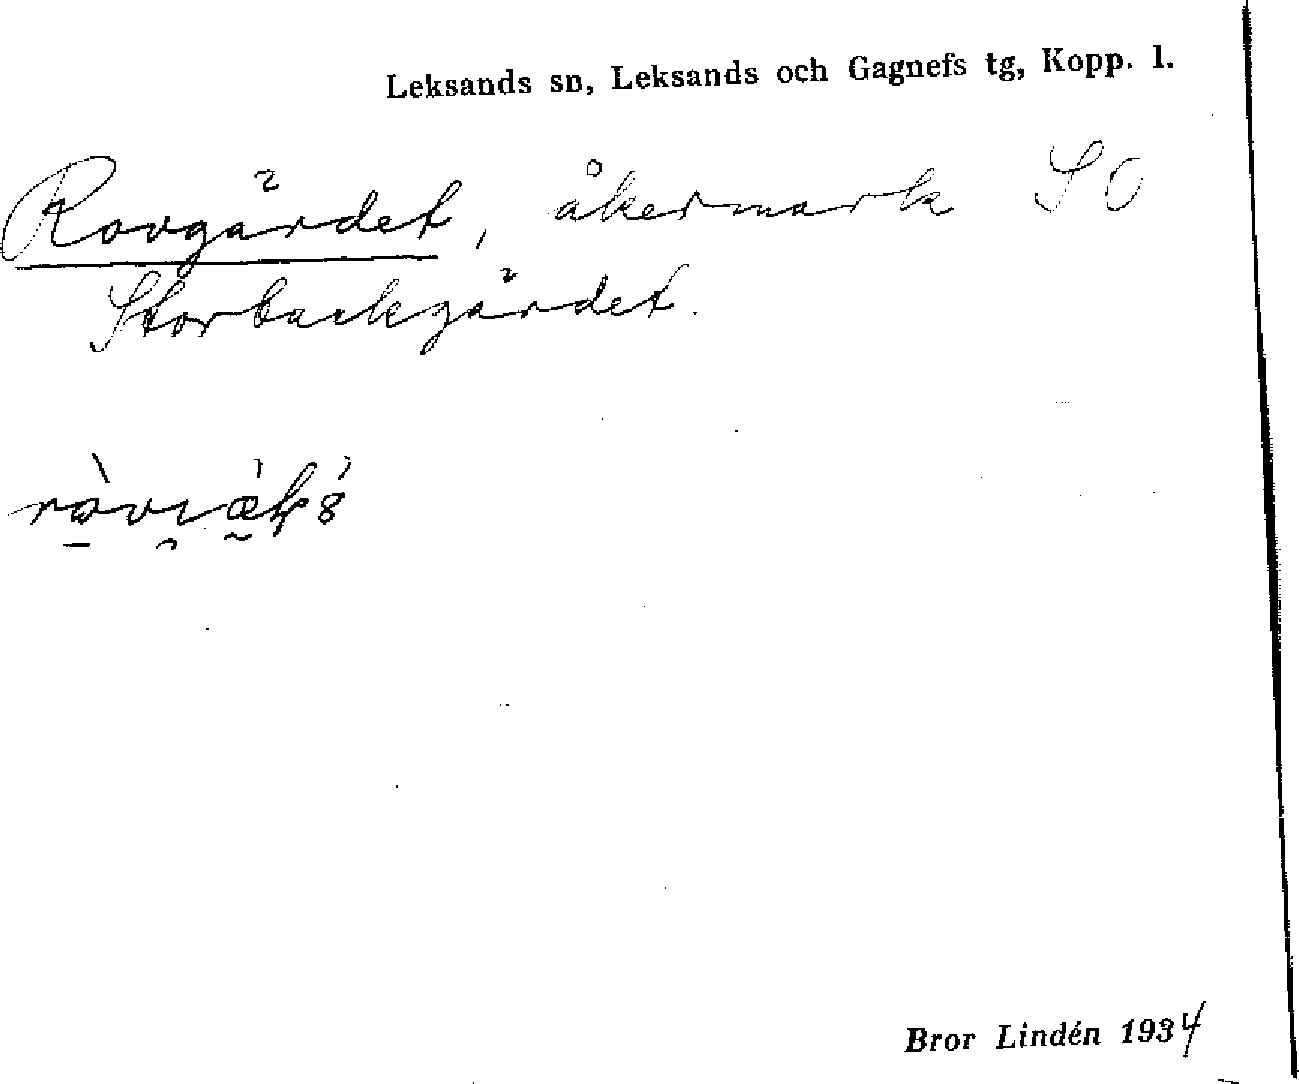 Leksands sn, Leksands och Gagnefs tg, Kopp. l.
Rovgärdet, åkermark SO
Storbackgärdet.
Bror Lindén 1934